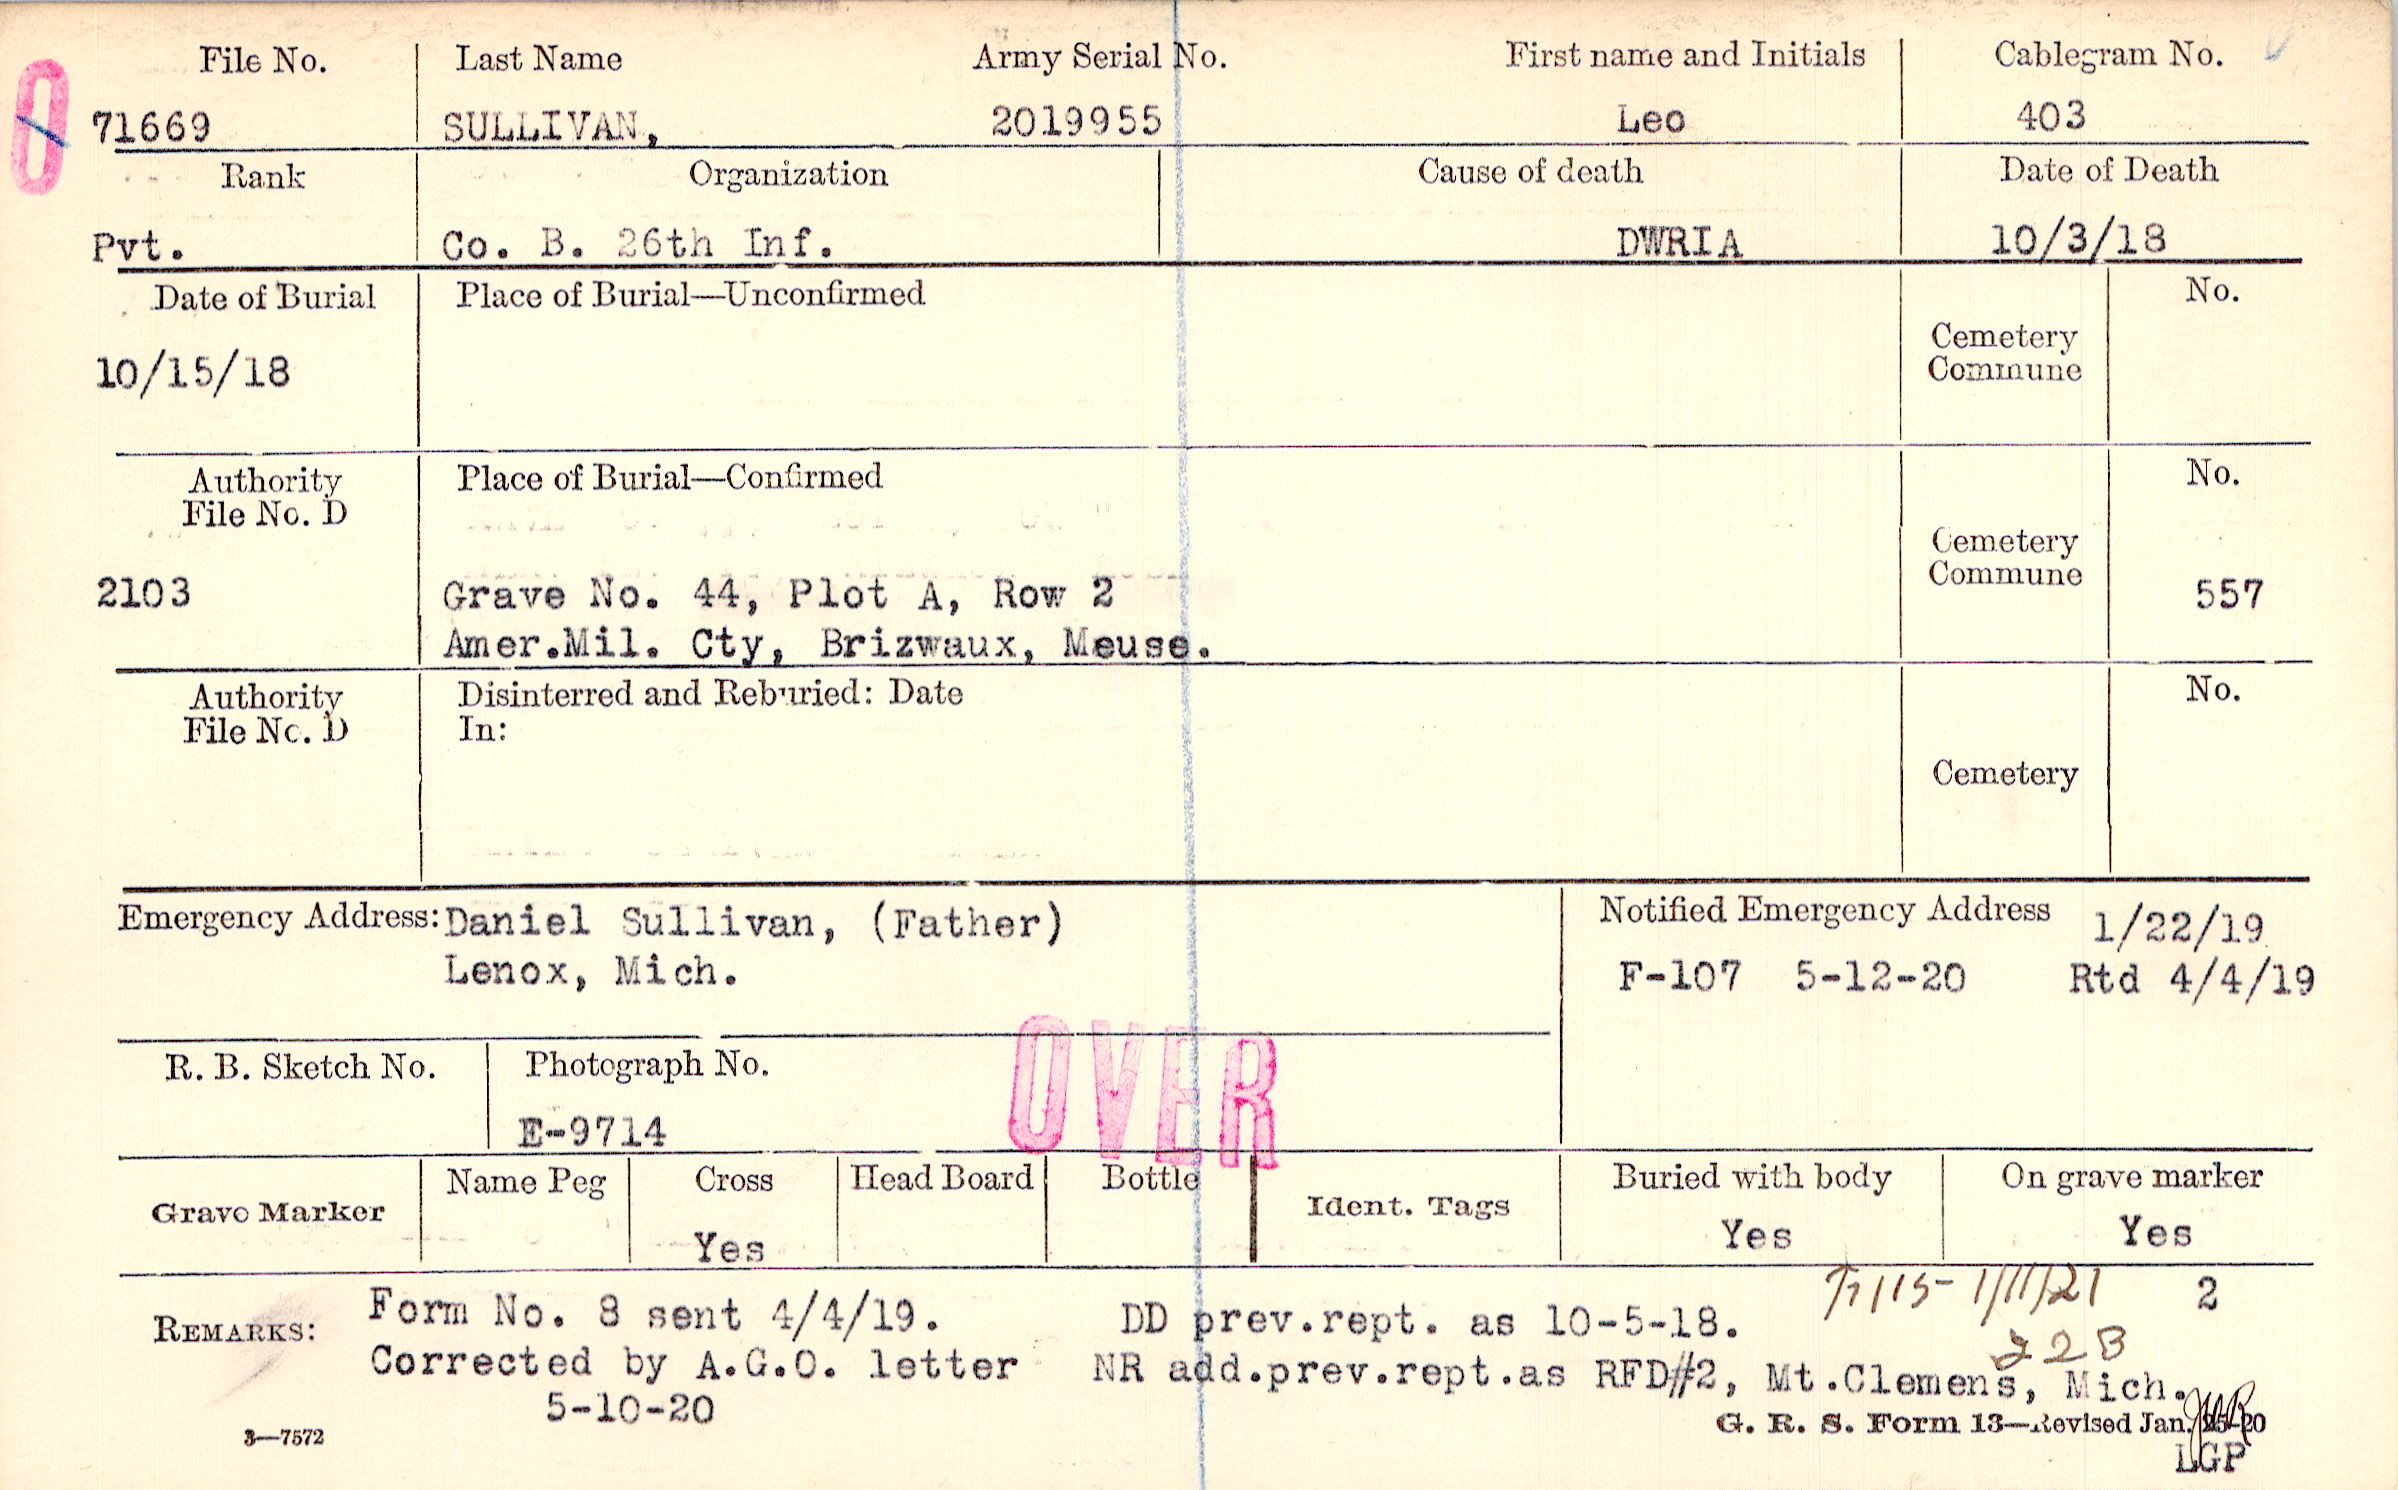 File No. Last Name Army Serial No. First name and Initials Cablegram No.
O 71669 SULLIVAN, 2019955 Leo 403
Rank Organization Cause of death Date of Death
Pvt. Co. B. 26th Inf. DWRIA 10/3/18
Date of Burial Place of Burial—Unconfirmed No.
Cemetery
Commune
10/15/18
Authority Place of Burial—Confirmed No.
File No. D
Cemetery
Commune
2103 Grave No. 44, Plot A, Row 2 557
Amer.Mil. Cty, Brizwaux, Meuse.
Authority Disinterred and Reburied: Date No.
File No. D In:
Cemetery
Emergency Address: Daniel Sullivan, (Father) Notified Emergency Address 1/22/19
Lenox, Mich. F-107 5-12-20 Rtd 4/4/19
OVER
R. B. Sketch No. Photograph No.
E-9714
Grave Marker Name Peg Cross Head Board Bottle Ident. Tags Buried with body On grave marker
Yes Yes Yes
1/11/21 2
REMARKS: Form No. 8 sent 4/4/19. DD prev.rept. as 10-5-18.
22B
Corrected by A.G.O. letter NR add.prev.rept.as RFD#2, Mt.Clemens, Mich.
5-10-20
3—7572 G. R. S. Form 13—Revised Jan. 25-20
LGP